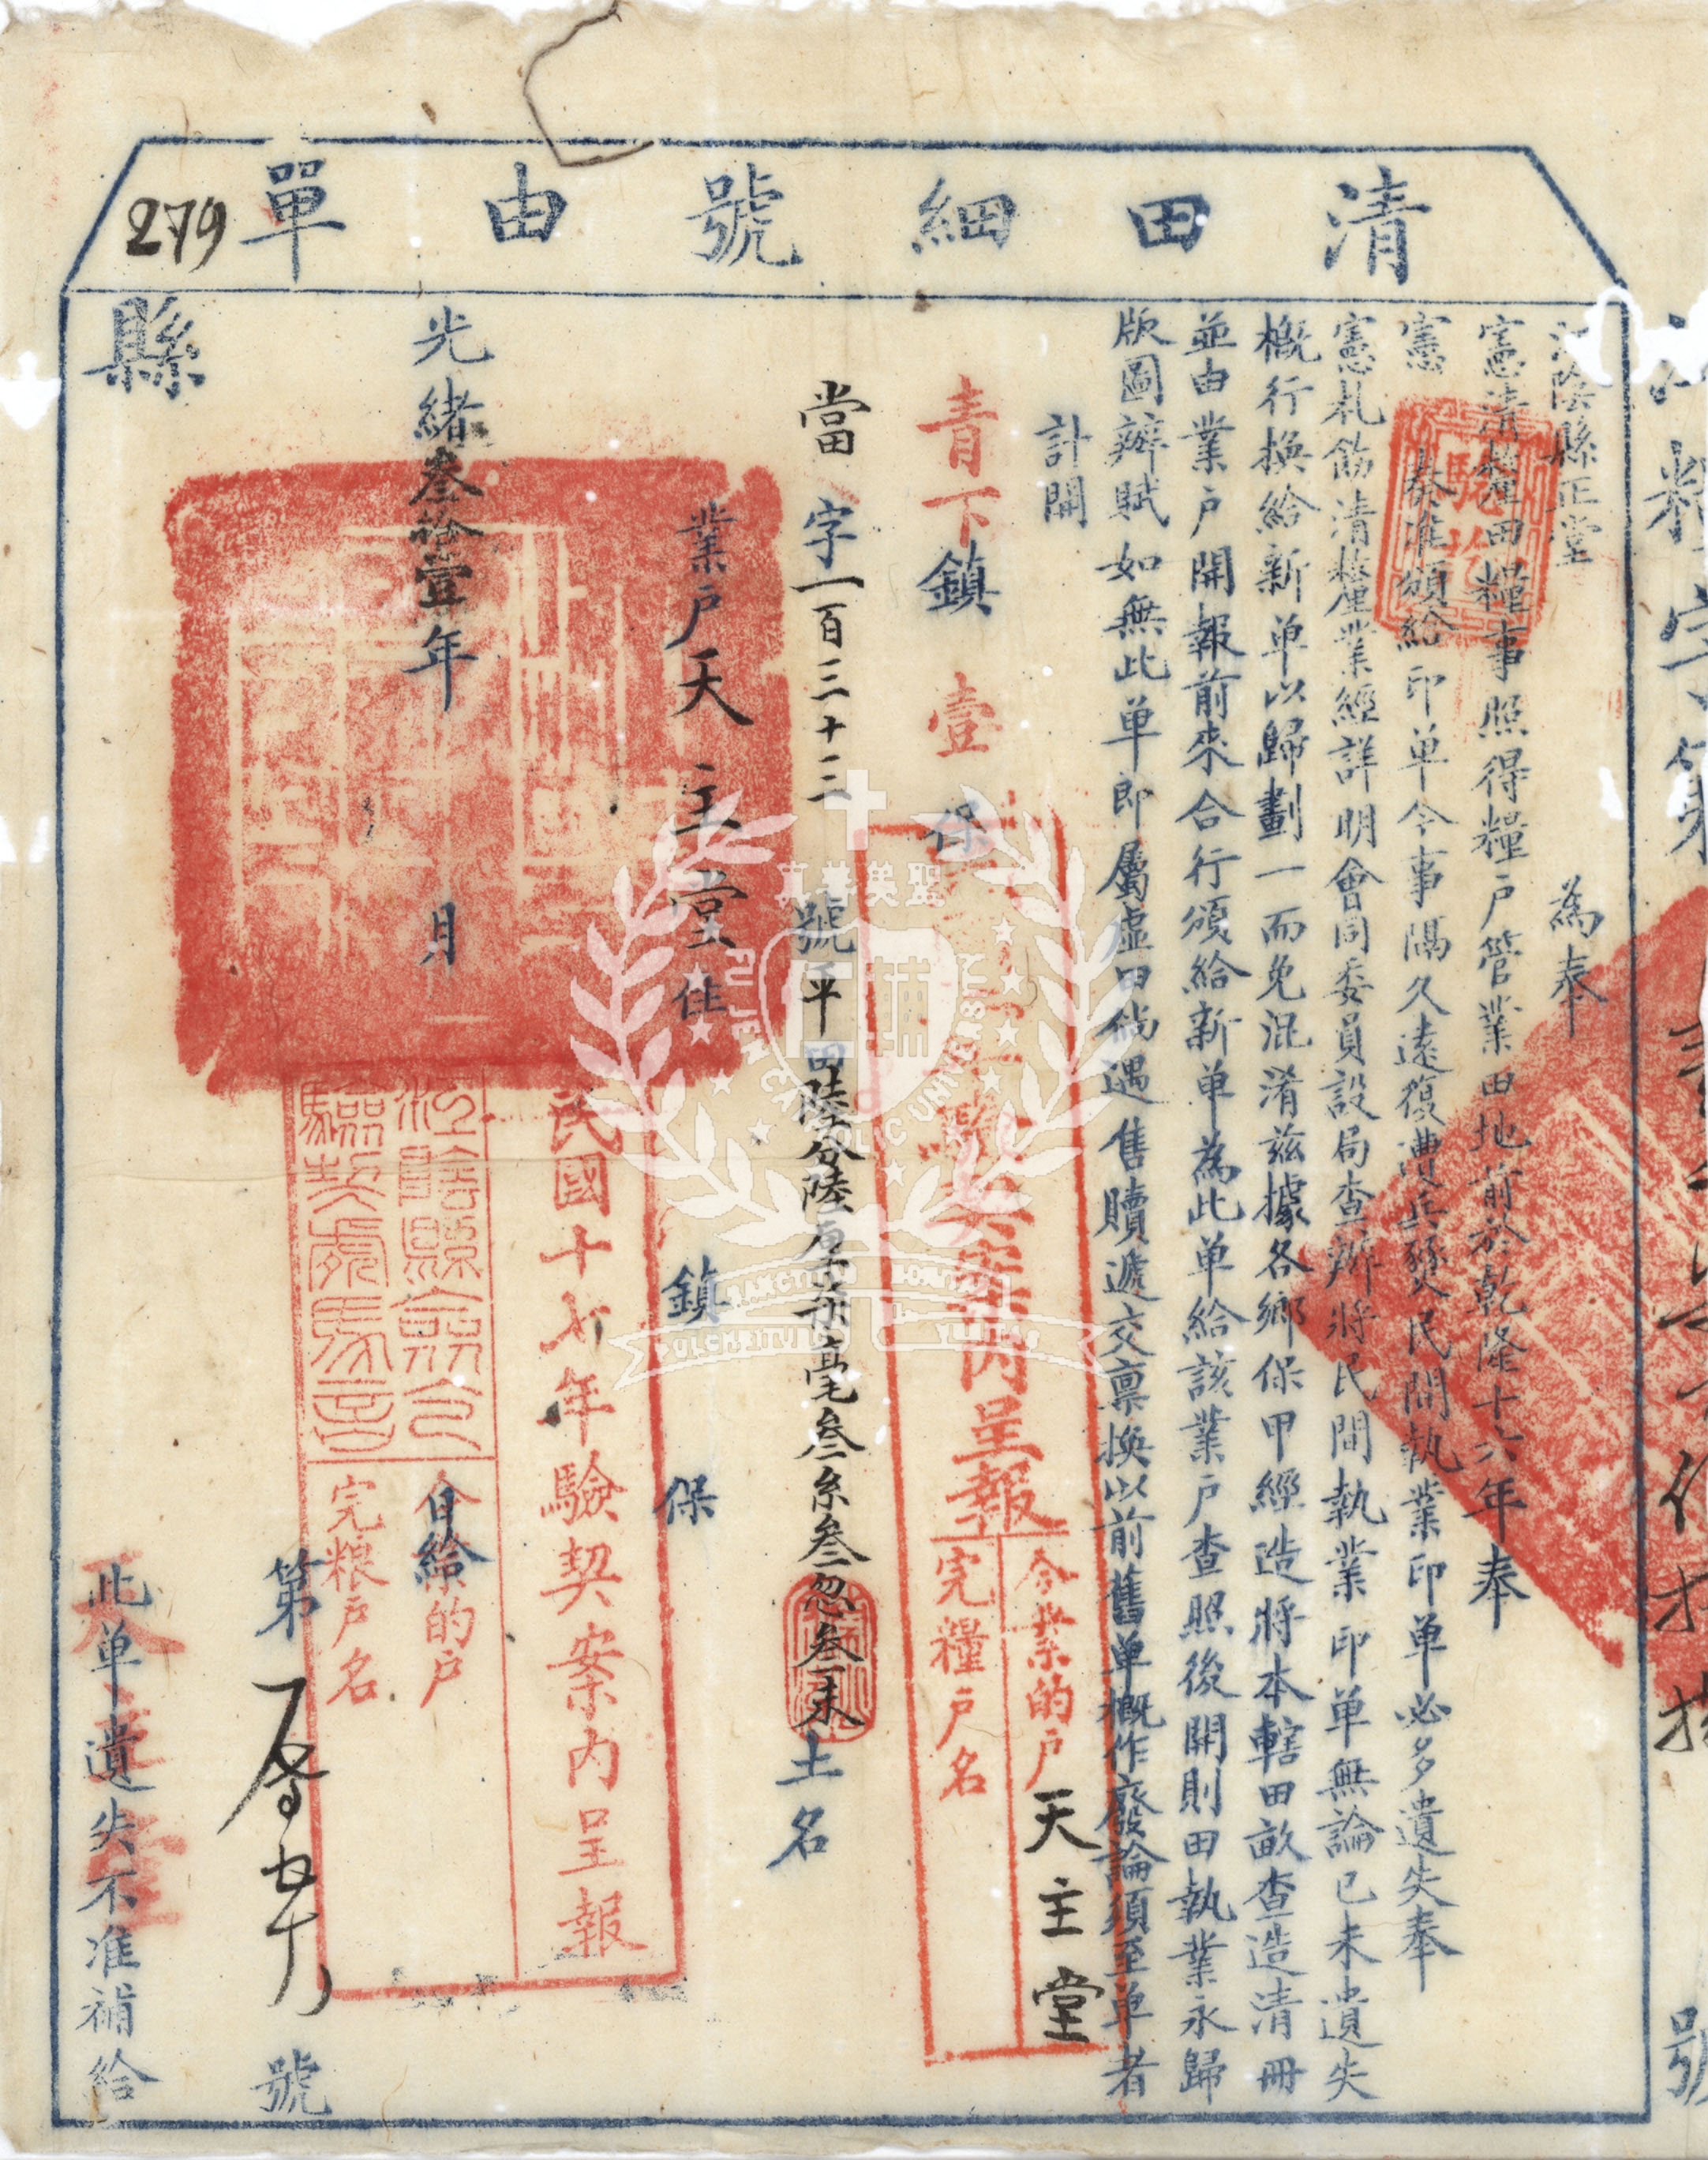 清田細號由單
279
江陰縣正堂 為奉
憲清釐田糧事照得糧戶管業田地前於乾隆十六年奉
憲 奏准頒給印单今事隔久遠復遭兵燹民間執業印单必多遺失奉
憲札飭清釐業經詳明會同委員設局查辦將民間執業印单無論已未遺失
概行換給新单以歸劃一而免混淆茲據各鄉保甲經造將本轄田畝查造清冊
並由業戶開報前來合行頒給新单為此单給該業戶查照後開則田執業永歸
版圖辦賦如無此单即屬虛田倘遇售贖遞交稟換以前舊单概作廢論須至单者
計開
青下鎮 壹 保
驗契案內呈報
今業的戶 天主堂
完糧戶名
當 字一百三十三 號平田陸分陸厘柒毫叁糸叁忽叁末土名
業戶天主堂住 鎮 保
民國十七年驗契案內呈報
光緒叁拾壹年 月 日給
江陰縣
驗契處
今業的戶
完粮戶名
第 號
縣
此单遺失不准補給
天主堂
驗訖
字第
號
FU JEN CATHOLIC UNIVERSITY
真善美聖